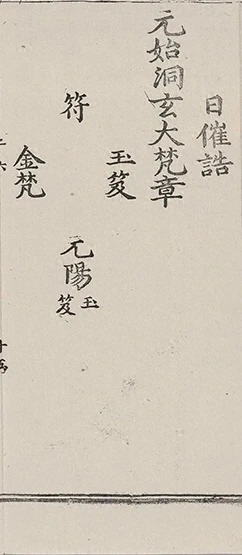 日催誥
元始洞玄大梵章
玉笈
符
元陽玉笈
金梵